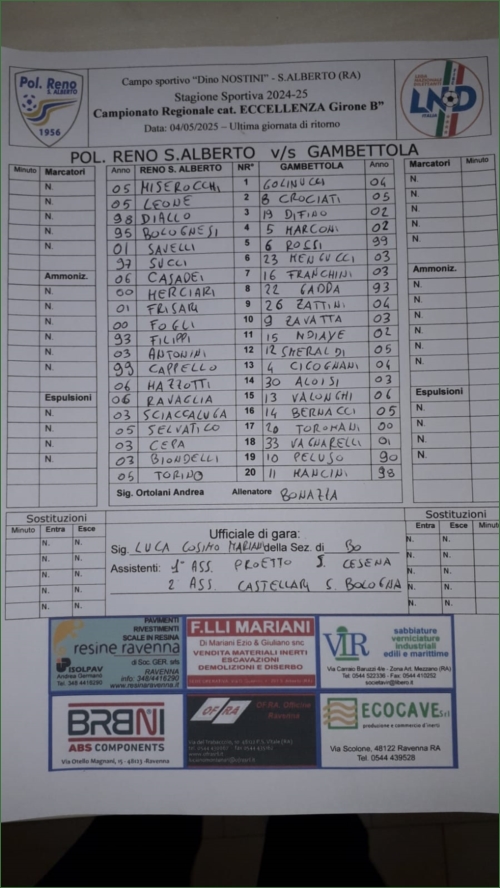 Pol. Reno
S. ALBERTO
1956
Campo sportivo “Dino NOSTINI” - S.ALBERTO (RA)
Stagione Sportiva 2024-25
Campionato Regionale cat. ECCELLENZA Girone B”
Data: 04/05/2025 – Ultima giornata di ritorno
LND
ITALIA
POL. RENO S.ALBERTO v/s GAMBETTOLA
Minuto Marcatori Anno RENO S. ALBERTO NR° GAMBETTOLA Anno Marcatori Minuto
N. 05 MISEROCCHI 1 GOLINUCCI 04 N.
N. 05 LEONE 2 8 CROCIATI 05 N.
N. 98 DIALLO 3 19 DIFINO 02 N.
N. 95 BOLOGNESI 4 5 MARCONI 02 N.
N. 01 SAVELLI 5 6 ROSSI 99 N.
97 SUCCI 6 23 MENGUCCI 03
Ammoniz. 06 CASADEI 7 16 FRANCHINI 03 Ammoniz.
N. 00 MERCIARI 8 22 GADDA 93 N.
N. 01 FRISARI 9 26 ZATTINI 04 N.
N. 00 FOGLI 10 9 ZAVATTA 03 N.
N. 93 FILIPPI 11 15 NDIAYE 02 N.
N. 03 ANTONINI 12 12 SMERALDI 05 N.
99 CAPPELLO 13 4 CICOGNANI 04
Espulsioni 06 MAZZOTTI 14 30 ALOISI 03 Espulsioni
N. 06 RAVAGLIA 15 13 VALONCHI 06 N.
N. 03 SCIACCALUGA 16 14 BERNACCI 05 N.
N. 05 SELVATICO 17 20 TOROMANI 00 N.
N. 03 CEPA 18 33 VAGNARELLI 01 N.
N. 03 BIONDELLI 19 10 PELUSO 90 N.
05 TORINO 20 11 MANCINI 98
Sig. Ortolani Andrea Allenatore BONAZIA
Sostituzioni Sostituzioni
Minuto Entra Esce Entra Esce Minuto
Ufficiale di gara:
N. N. N. N.
Sig. LUCA COSIMO MARIANI della Sez. di BO
N. N. N. N.
Assistenti: 1° ASS. PROETTO S. CESENA
N. N. N. N.
2 ASS CASTELLARI S BOLOGNA
N. N. N. N.
N. N. N. N.
PAVIMENTI
RIVESTIMENTI
SCALE IN RESINA
resine ravenna
di Soc. GER. srls
RAVENNA
ISOLPAV
Andrea Germanò
Tel. 348 4416290
info: 348/4416290
www.resinaravenna.it
F.LLI MARIANI
Di Mariani Ezio & Giuliano snc
VENDITA MATERIALI INERTI
ESCAVAZIONI
DEMOLIZIONI E DISERBO
VIR
sabbiature
verniciature
industriali
edili e marittime
Via Canala Baruzzi 4/e - Zona Art. Mezzano (RA)
Tel. 0544 522336 - Fax: 0544 410252
societavir@libero.it
BRBNI
ABS COMPONENTS
Via Otello Magnani, 15 - 48123 - Ravenna
OFRA
OF.RA. Officine
Ravenna
ECOCAVE Srl
produzione e commercio d'inerti
Via Scolone, 48122 Ravenna RA
Tel. 0544 439528